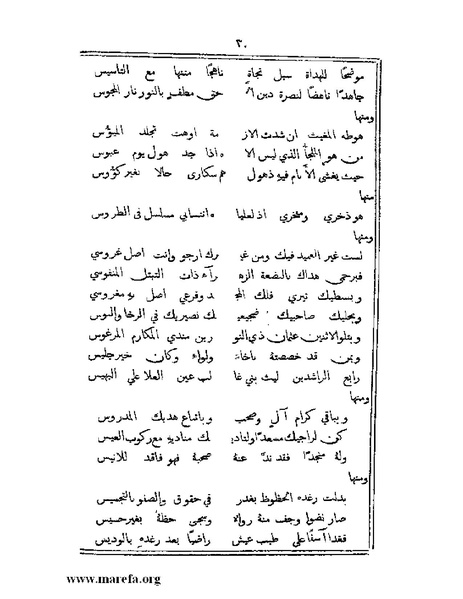 ٣٠
موضحًا للهداة سبل نجاة ناهجًا منتها مع التأسيس
جاهدًا ناهضًا لنصرة دين الله حتى مطفي بالنور نار المجوس
ومنها
هو طه المغيث ان شدت الاز مة اوهت تجلد الميؤس
من هو اللجأ الذي ليس الا ه اذا جد هول يوم عبوس
حيث يغشى الأنام فيه ذهول هم سكارى حالا بغير كؤوس
منها
هو ذخري ومفخري اذ لعليا ه انتسابي مسلسل في الطروس
ومنها
لست غير العميد فيك ومن غي رك ارجو وانت اصل غروسي
فبرحمي هداك بالبضعة الزه رآء ذات التبتل المنفوسي
وبسبطيك نيري فلك المج د وفرعي اصل به مغروسي
وبحليك صاحبيك ضجيعي ك نصيريك في الرخا والبوس
وبتلو الاثنين عثمان ذي النو رين سندي المكارم المرغوس
وبمن قد خصصته باخاء ولواء وكان خير جليس
رابع الراشدين ليث بني غا لب عين العلا علي البهيس
ومنها
وبباقي كرام آل وصحب وباتباع هديك المدروس
كن لراجيك مسعدًا ولناديـ ك مناديه مع ركوب العيس
وله منجدًا فقد ند عنه صحبه فهو فاقد للانيس
ومنها
بدلت رغده الحظوظ بغدر في حقوق والصفو بالتجسيس
صار نضوا وجف منه رواه وسجى حظه بغير حسيس
فغدا آسفًا على طيب عيش راضيًا بعد رغده بالوديس
www.marefa.org